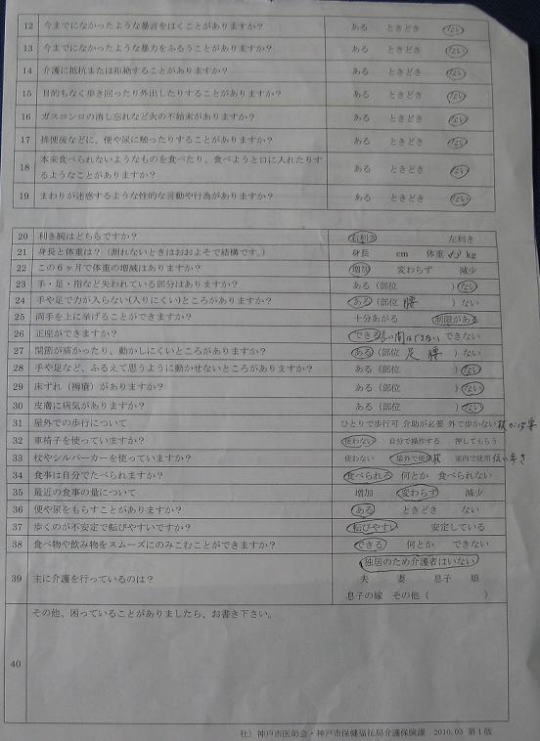 12 今までになかったような暴言をはくことがありますか? ある ときどき ない
13 今までになかったような暴力をふるうことがありますか? ある ときどき ない
14 介護に抵抗または拒絶することがありますか? ある ときどき ない
15 目的もなく歩き回ったり外出したりすることがありますか? ある ときどき ない
16 ガスコンロの消し忘れなど火の不始末がありますか? ある ときどき ない
17 排便後などに、便や尿に触ったりすることがありますか? ある ときどき ない
18 本来食べられないようなものを食べたり、食べようと口に入れたりす
るようなことがありますか? ある ときどき ない
19 まわりが迷惑するような性的な言動や行為がありますか? ある ときどき ない
20 利き腕はどちらですか? 右利き 左利き
21 身長と体重は?(測れないときはおおよそで結構です。) 身長 cm 体重 kg
22 この6ヶ月で体重の増減はありますか? 増加 変わらず 減少
23 手・足・指など失われている部分はありますか? ある(部位 )ない
24 手や足で力が入らない(入りにくい)ところがありますか? ある(部位 腰 )ない
25 両手を上に挙げることができますか? 十分あがる 制限がある
26 正座ができますか? できる できない
27 関節が痛かったり、動かしにくいところがありますか? ある(部位 足 腰 )ない
28 手や足など、ふるえて思うように動かせないところがありますか? ある(部位 )ない
29 床ずれ(褥瘡)がありますか? ある(部位 )ない
30 皮膚に病気がありますか? ある(部位 )ない
31 屋外での歩行について ひとりで歩行可 介助が必要 外で歩かない 杖が必要
32 車椅子を使っていますか? 使わない 自分で操作する 押してもらう
33 杖やシルバーカーを使っていますか? 使わない 屋外で使用 杖 室内で使用 伝い歩き
34 食事は自分でたべられますか? 食べられる 何とか 食べられない
35 最近の食事の量について 増加 変わらず 減少
36 便や尿をもらすことがありますか? ある ときどき ない
37 歩くのが不安定で転びやすいですか? 転びやすい 安定している
38 食べ物や飲み物をスムーズにのみこむことができますか? できる 何とか できない
39 主に介護を行っているのは? 独居のため介護者はいない
夫 妻 息子 娘
息子の嫁 その他( )
40 その他、困っていることがありましたら、お書き下さい。
社)神戸市医師会・神戸市保健福祉局介護保険課 2010.03 第1版